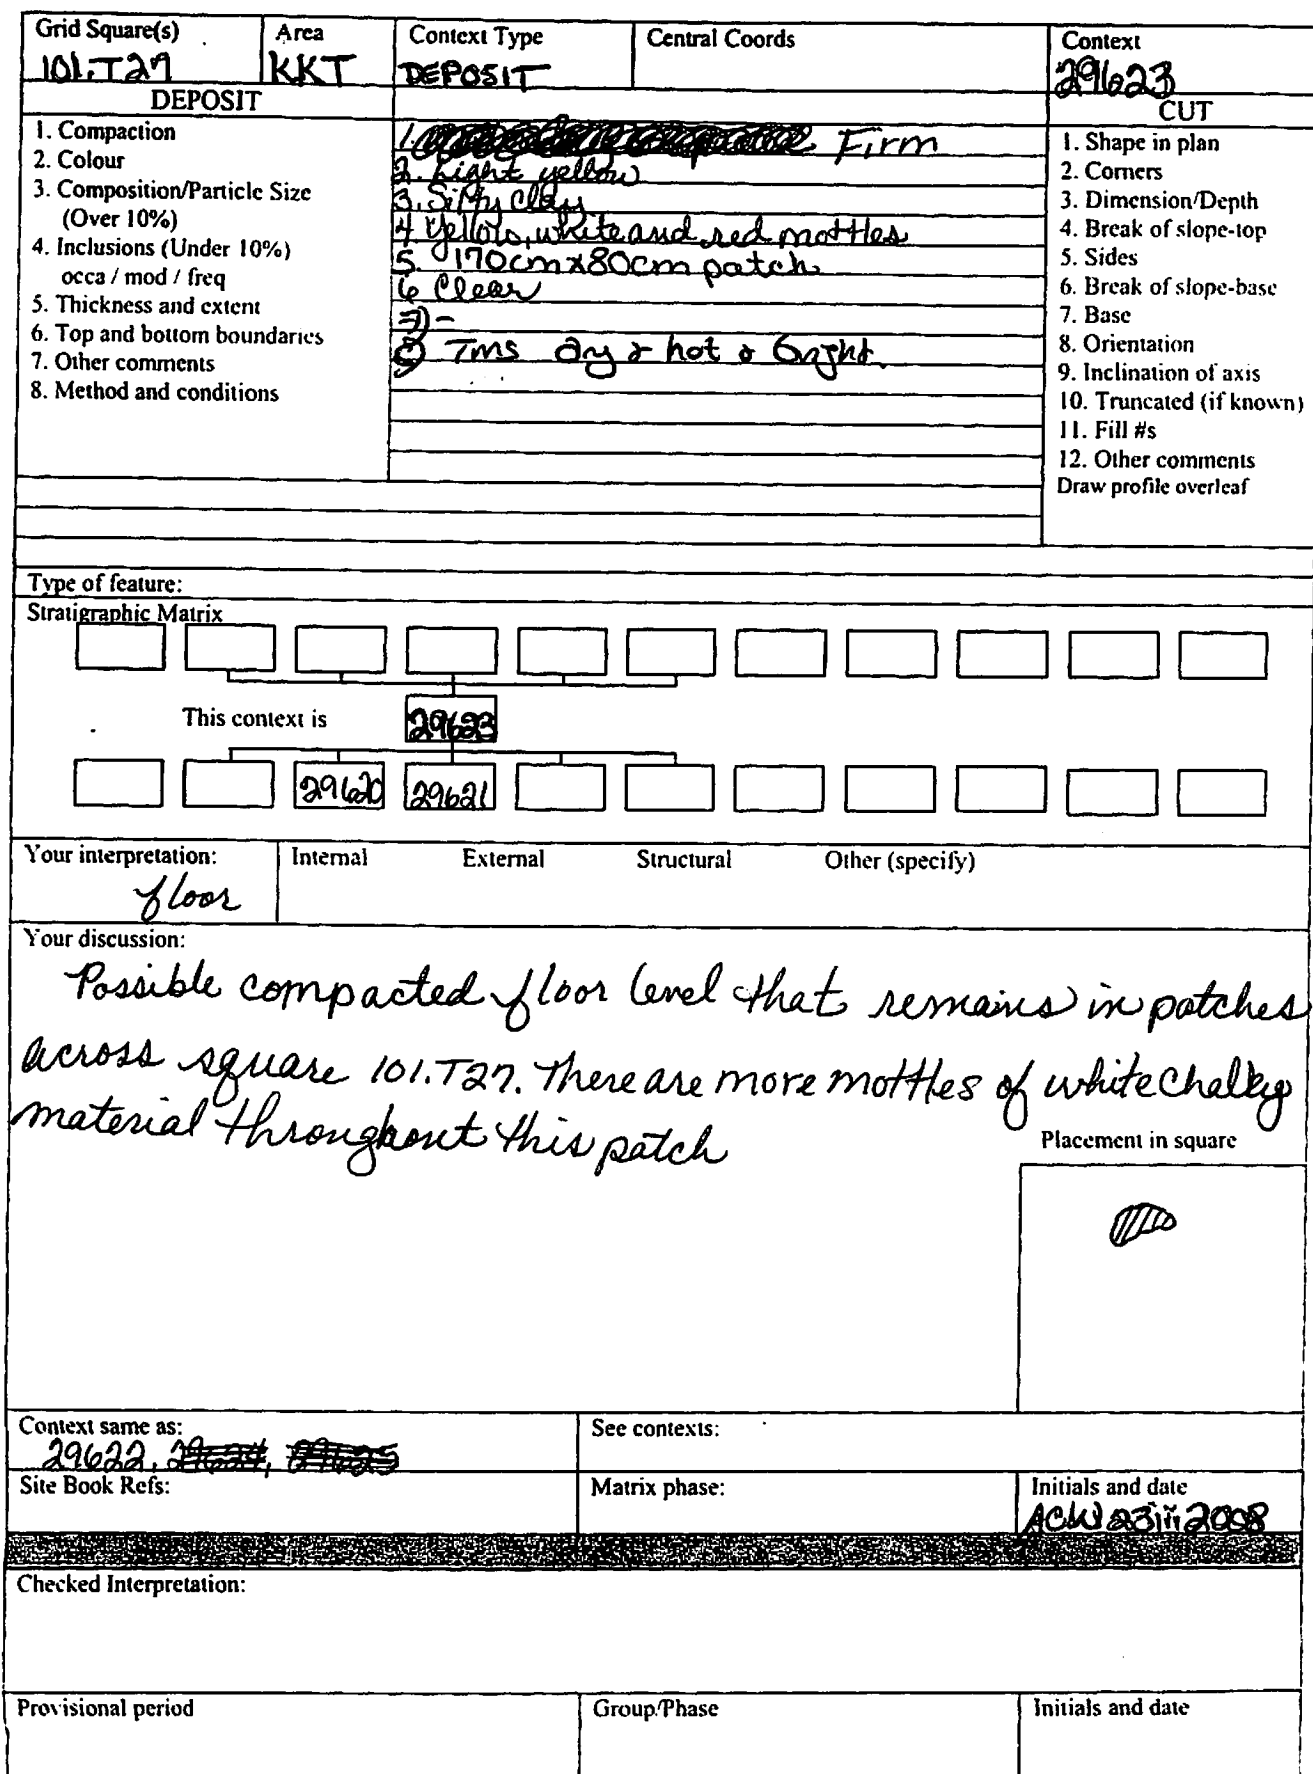 Grid Square(s)
101.T27
Area
KKT
Context Type
DEPOSIT
Central Coords
Context
29623
DEPOSIT
1. Compaction
2. Colour
3. Composition/Particle Size
(Over 10%)
4. Inclusions (Under 10%)
occa / mod / freq
5. Thickness and extent
6. Top and bottom boundaries
7. Other comments
8. Method and conditions
1. Firm
2. Light yellow
3. Silty clay
4 Yellow, white and red mottles
5. 170cm x 80cm patch
6 Clear
7) -
8) TMS dry & hot & bright.
CUT
1. Shape in plan
2. Corners
3. Dimension/Depth
4. Break of slope-top
5. Sides
6. Break of slope-base
7. Base
8. Orientation
9. Inclination of axis
10. Truncated (if known)
11. Fill #s
12. Other comments
Draw profile overleaf
Type of feature:
Stratigraphic Matrix
This context is
29623
29620 29621
Your interpretation:
floor
Internal External Structural Other (specify)
Your discussion:
Possible compacted floor level that remains in patches
across square 101.T27. There are more mottles of white chalky
material throughout this patch
Placement in square
Context same as:
29622, 29624, 29625
See contexts:
Site Book Refs:
Matrix phase:
Initials and date
ACW 23iii2008
Checked Interpretation:
Provisional period
Group/Phase
Initials and date